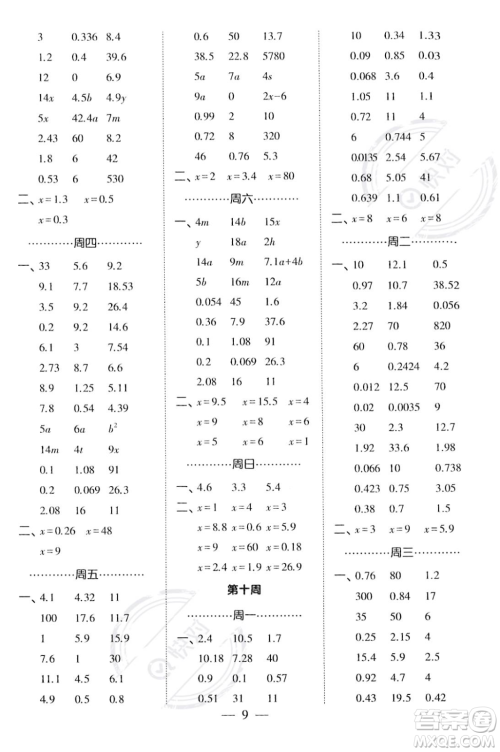 3 0.336 8.4
1.2 0.42 39.6
12 0 6.9
14x 4.5b 4.9y
5x 42.4a 7m
2.43 60 8.2
1.8 6 42
0.53 6 530
二、x=1.3 x=0.03
x=0.3
周四
一、33 5.6 9.2
9.1 7.7 18.53
3.5 9.2 26.4
6.1 3 2.7
2.73 8.7 8.6
7.8 0.54 9
5a 6a b²
14m 4t 9x
0.1 1.08 91
0.2 0.069 26.4
2.08 16 11
二、x=0.26 x=48
x=9
周五
一、4.1 4.32 11
100 17.6 11.7
1 5.9 15.9
7.6 1 30
11.1 4.51 5.7
4.9 0.5 12
0.6 9 13.7
38.5 22.8 5780
5a 7a 4s
9a 0 2x−6
0.99 2 22
0.72 7 8.8
46 0.76 3.5
二、x=2 x=3.4 x=80
周六
一、4m 14b 15x
y 14x 15b
14a 9m 7.1a+4b
5b 16 12a
0.054 45 1.6
0.1 1.08 91
0.2 0.069 26.3
2.08 16 11
二、x=9.5 x=15.5 x=4
x=9 x=10 x=6
x=5 x=5 x=6
周日
一、4.6 3.3 5.4
二、x=1 x=3 x=4
x=8.8 x=0.6 x=5.9
x=9 x=9 x=9
x=16 x=2.86 x=9
第十周
周一
一、2.4 10.5 1.7
10.18 7.28 40
0.9 0.1 0.57
0.51 31 0.22
10 0.34 1.33
0.09 0.85 4.3
0.068 3 3.6
1.05 11 11
0.72 11 4
6 0.744 5
0.0135 2.54 5.67
0.68 5.05 8.4
0.639 1 1
二、x=8 x=6 x=8
周二
一、10 12.1 0.5
0.97 10 38.52
0.5 70 820
60 0 2
6 0.2424 4.2
0.012 10 3
0.02 0.0035 9
30 2.3 12.7
1.92 33 0.98
0.066 10 2
0.0372 10 4
0.38 9.7 1
二、x=3 x=9 x=9
周三
一、0.76 80 1.2
300 0.015 10
35 50 6
0.07 0.7 0.63
0.37 44.2 0.16
0.42 0.35 0.54
— 9 —